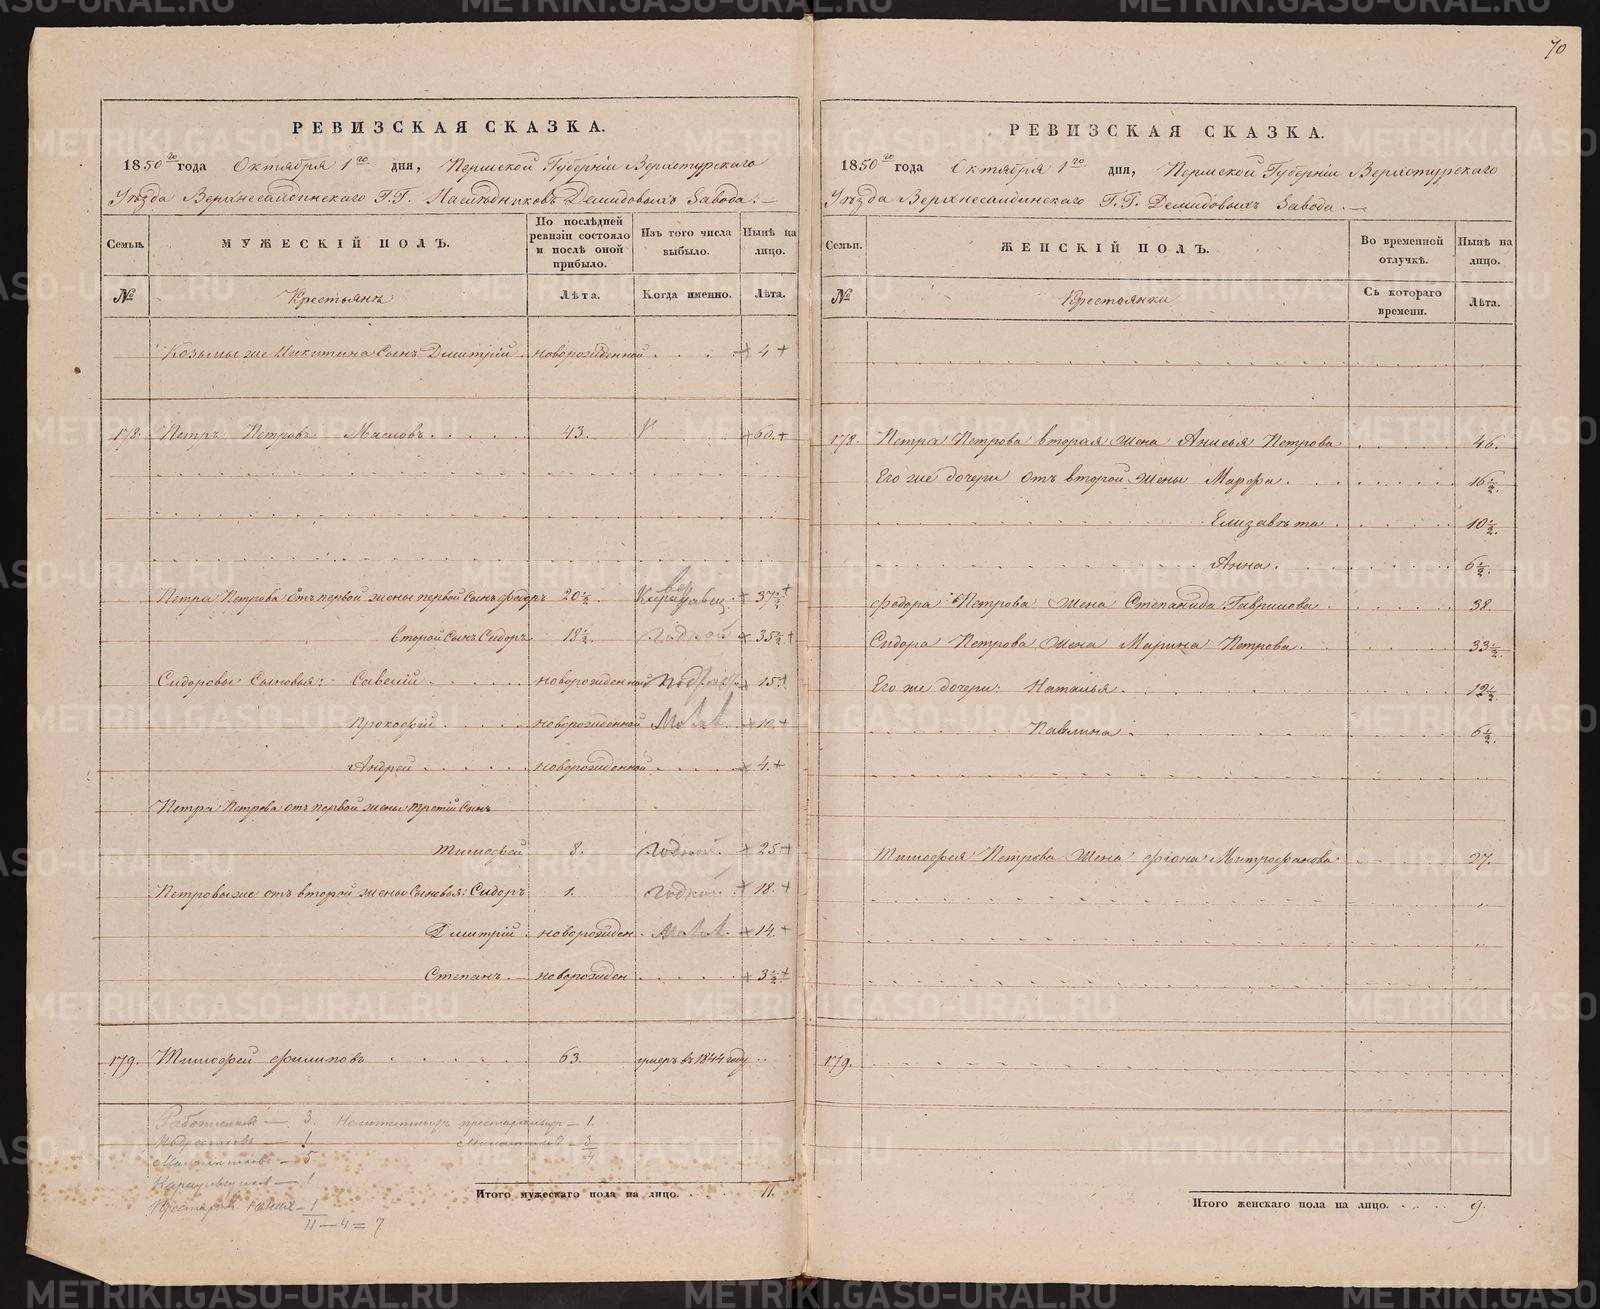 70
РЕВИЗСКАЯ СКАЗКА.
1850го года Октября 1го дня, Пермской Губернiи Верхотурскаго
Уѣзда Верхнесалдинскаго Г.Г. Наслѣдниковъ Демидовыхъ Завода:—
Семьи.
МУЖЕСКIЙ ПОЛЪ.
По послѣдней ревизiи состояло и послѣ оной прибыло.
Изъ того числа выбыло.
Нынѣ на лицо.
№
Крестьянъ
Лѣта.
Когда именно.
Лѣта.
Козьмы же Никитина сынъ Дмитрiй новорожденной 4
178. Петръ Петровъ Масловъ 43. 60.
Петра Петрова отъ первой жены первой сынъ Федоръ 20½. 37½
второй сынъ Сидоръ 18½. годной 35½
Сидоровы сыновья: Савелiй новорожденной 15
Прокофiй новорожденной 10.
Андрей новорожденной 4.
Петра Петрова отъ первой жены третiй сынъ
Тимофей 8. годной 25.
Петровы же отъ второй жены сыновья: Сидоръ 1. годной 18.
Дмитрiй новорожден 14.
Степанъ новорожден 3½.
179. Тимофей Филиповъ 63. умеръ въ 1844 году
3 1.
1 3
5 4
1
1
11 — 4 = 7
Итого мужескаго пола на лицо. 11.
РЕВИЗСКАЯ СКАЗКА.
1850го года Октября 1го дня, Пермской Губернiи Верхотурскаго
Уѣзда Верхнесалдинскаго Г.Г. Демидовыхъ Завода.—
Семьи.
ЖЕНСКIЙ ПОЛЪ.
Во временной отлучкѣ.
Нынѣ на лицо.
№
Крестьянки
Съ котораго времени.
Лѣта.
178. Петра Петрова вторая жена Анисья Петрова 46.
Его же дочери отъ второй жены Марфа 16½.
Елизавѣта 10½.
Анна 6½.
Федора Петрова жена Степанида Гаврилова 38.
Сидора Петрова жена Марина Петрова 33½.
Его же дочери: Наталья 12½.
Павлина 6½.
Тимофея Петрова жена Фiона Митрофанова 27.
179.
Итого женскаго пола на лицо. 9.
METRIKI.GASO-URAL.RU